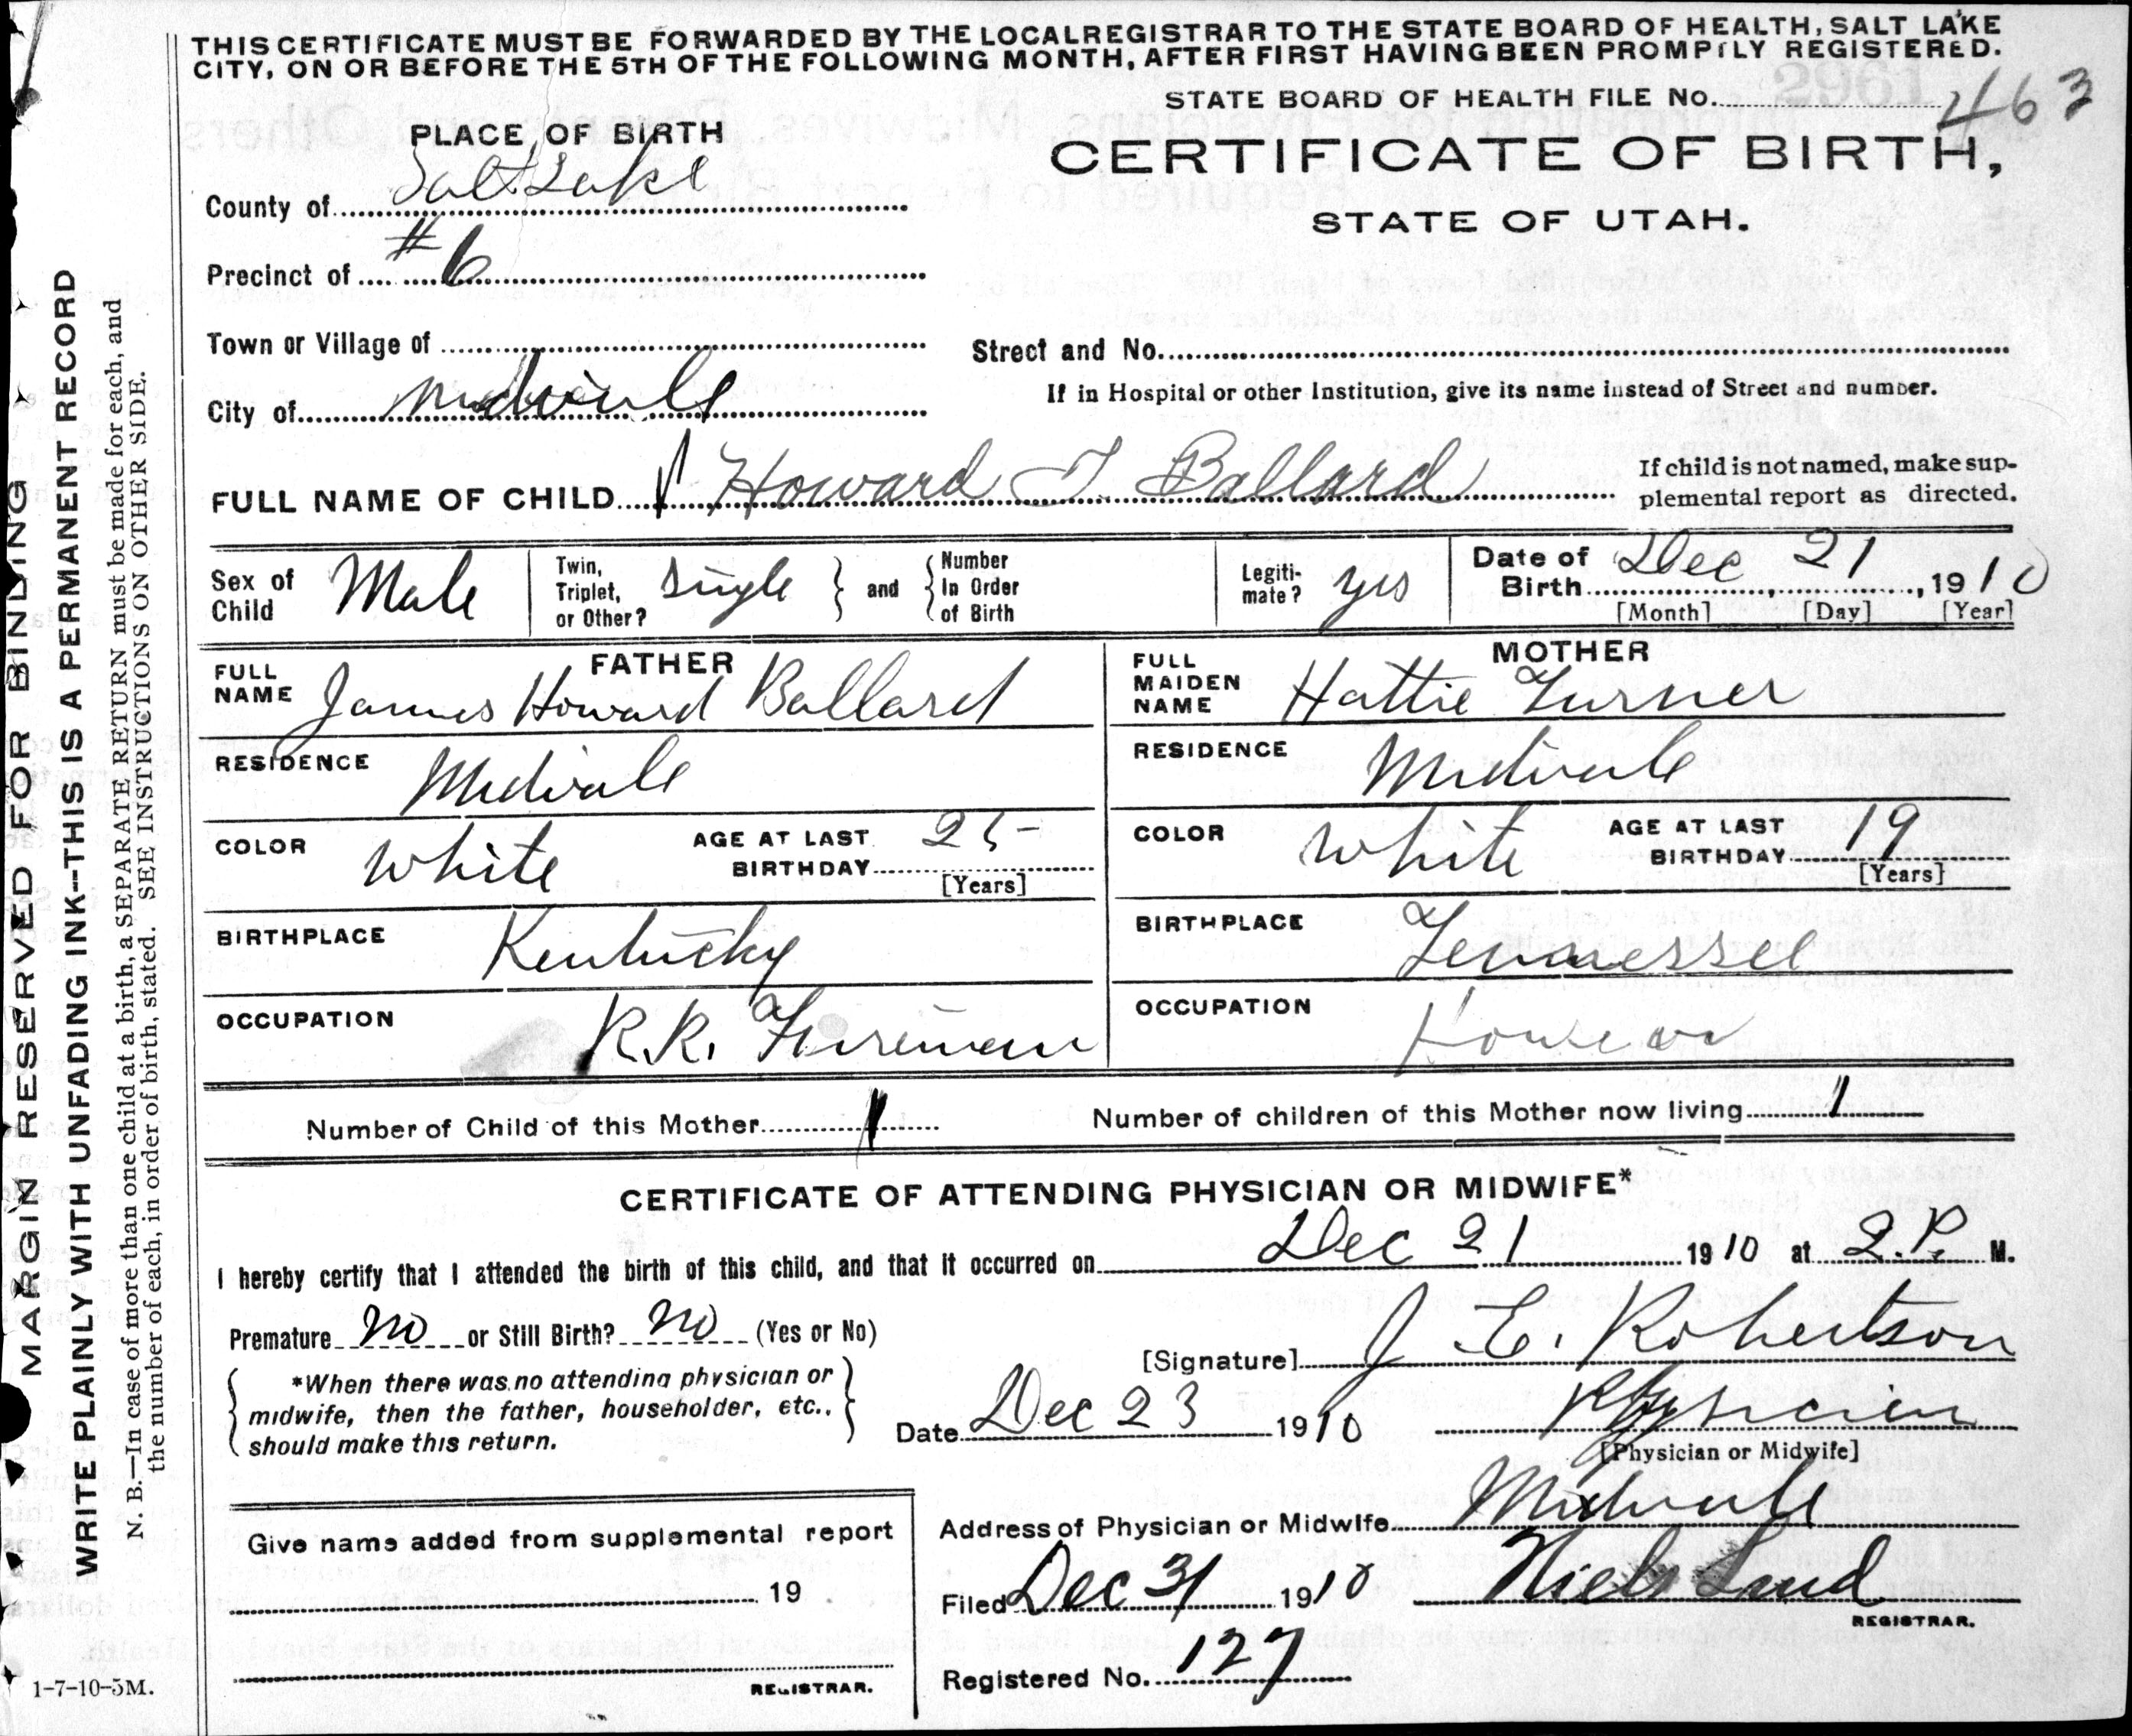 THIS CERTIFICATE MUST BE FORWARDED BY THE LOCAL REGISTRAR TO THE STATE BOARD OF HEALTH, SALT LAKE
CITY, ON OR BEFORE THE 5TH OF THE FOLLOWING MONTH, AFTER FIRST HAVING BEEN PROMPTLY REGISTERED.
STATE BOARD OF HEALTH FILE No. 463
PLACE OF BIRTH
CERTIFICATE OF BIRTH,
STATE OF UTAH.
County of Salt Lake
Precinct of #6
Town or Village of
Street and No.
City of Midvale
If in Hospital or other Institution, give its name instead of Street and number.
FULL NAME OF CHILD Howard T. Ballard
If child is not named, make sup-
plemental report as directed.
Sex of Child Male
Twin, Triplet, or Other? Single and Number In Order of Birth
Legiti-mate? yes
Date of Birth Dec 21, 1910
[Month] [Day] [Year]
FATHER
FULL NAME James Howard Ballard
RESIDENCE Midvale
COLOR White AGE AT LAST BIRTHDAY 25
[Years]
BIRTHPLACE Kentucky
OCCUPATION R.R. Fireman
MOTHER
FULL MAIDEN NAME Hattie Turner
RESIDENCE Midvale
COLOR White AGE AT LAST BIRTHDAY 19
[Years]
BIRTHPLACE Tennessee
OCCUPATION
Number of Child of this Mother 1
Number of children of this Mother now living 1
CERTIFICATE OF ATTENDING PHYSICIAN OR MIDWIFE*
I hereby certify that I attended the birth of this child, and that it occurred on Dec 21 1910 at 2.P. M.
Premature No or Still Birth? No (Yes or No)
[Signature] J. E. Robertson
*When there was no attending physician or
midwife, then the father, householder, etc.,
should make this return.
Date Dec 23 1910 Physician
[Physician or Midwife]
Address of Physician or Midwife Midvale
Filed Dec 31 1910 Niels Lind
REGISTRAR.
Registered No. 127
Give name added from supplemental report
19
REGISTRAR.
1-7-10-5M.
MARGIN RESERVED FOR BINDING
WRITE PLAINLY WITH UNFADING INK—THIS IS A PERMANENT RECORD
N. B.—In case of more than one child at a birth, a SEPARATE RETURN must be made for each, and
the number of each, in order of birth, stated. SEE INSTRUCTIONS ON OTHER SIDE.